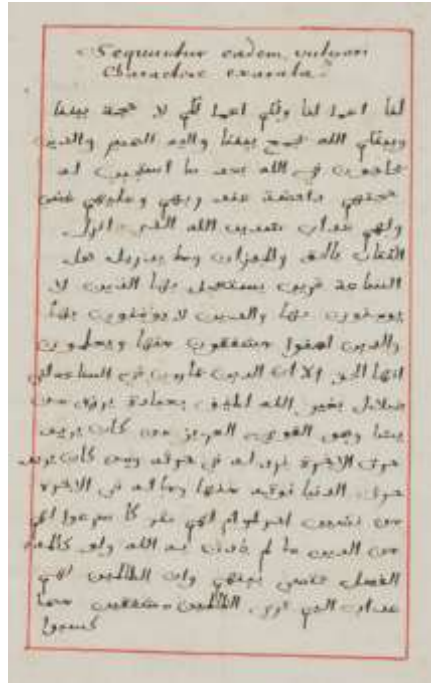 Sequuntur eadem vulgari
Charactere exarata.
لنا اعملنا ولكم اعملكم لا حجة بيننا
وبينكم الله يجمع بيننا واليه المصير والذين
يحاجون في الله بعد ما استجيب له
حجتهم داحضة عند ربهم وعليهم غضب
ولهم عذاب شديد الله الذي انزل
الكتاب بالحق والميزان وما يدريك لعل
الساعة قريب يستعجل بها الذين لا
يومنون بها والذين لا يؤمنون بها
والذين امنوا مشفقون منها ويعلمون
انها الحق الا ان الذين يمارون في الساعة لفي
ضلال بعيد الله لطيف بعباده يرزق من
يشا وهو القوي العزيز من كان يريد
حرث الاخرة نزد له في حرثه ومن كان يريد
حرث الدنيا نوته منها وما له في الاخرة
من نصيب لهم شركا شرعوا لهم
من الدين ما لم ياذن به الله ولو كلمة
الفصل لقضي بينهم وان الظالمين لهم
عذاب اليم ترى الظالمين مشفقين مما
كسبوا